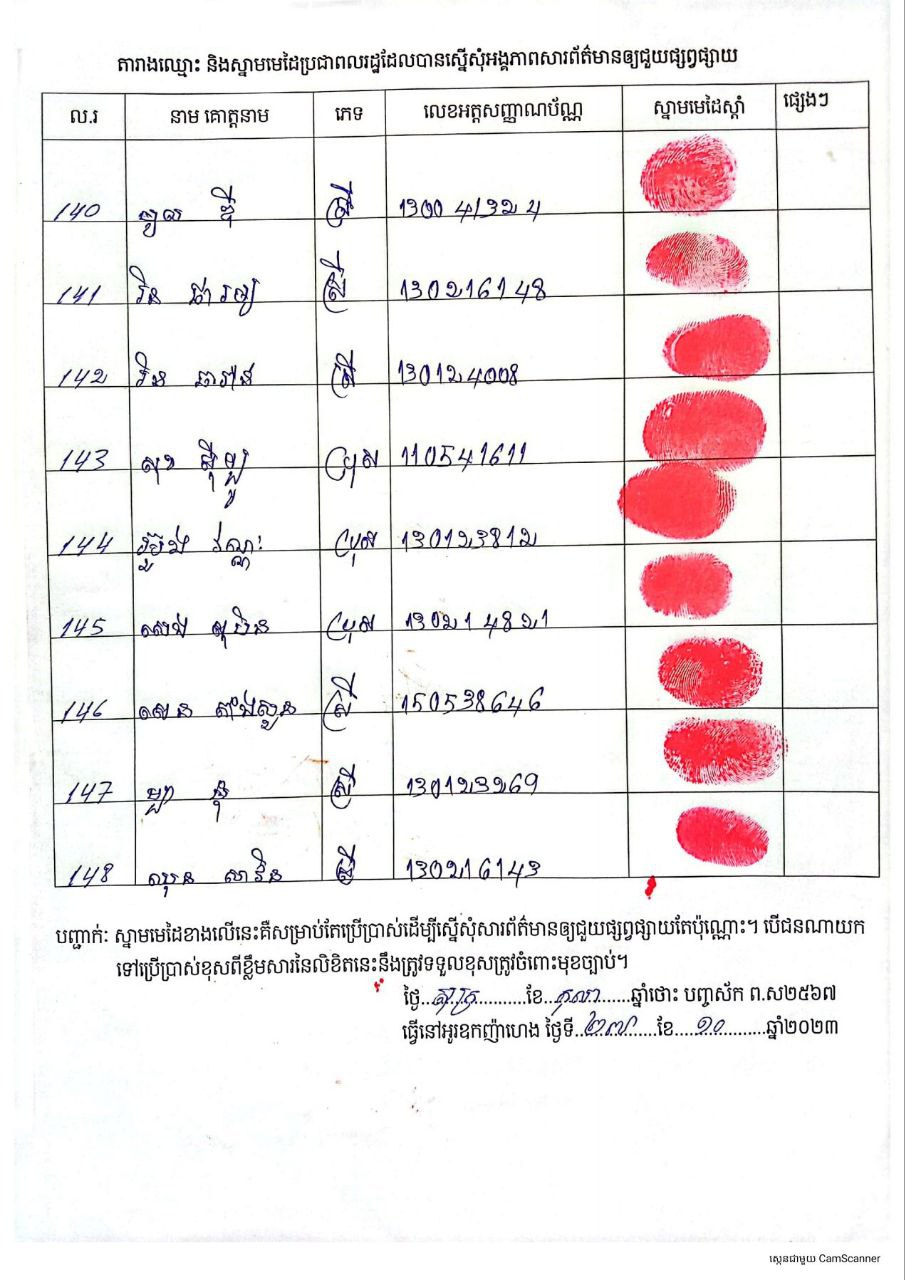 តារាងឈ្មោះ និងស្នាមមេដៃប្រជាពលរដ្ឋដែលបានស្នើសុំអង្គភាពសារព័ត៌មានឲ្យជួយផ្សព្វផ្សាយ
ល.រ នាម គោត្តនាម ភេទ លេខអត្តសញ្ញាណប័ណ្ណ ស្នាមមេដៃស្តាំ ផ្សេងៗ
140 ស្រី 130041324
141 រិន ស្រី 130216148
142 រិន ស្រី 130124008
143 សុខ ប្រុស 110541611
144 វណ្ណៈ ប្រុស 130123812
145 ប្រុស 130214821
146 សេន ស្រី 150538646
147 ស្រី 130123269
148 សាវិន ស្រី 130216143
បញ្ជាក់: ស្នាមមេដៃខាងលើនេះគឺសម្រាប់តែប្រើប្រាស់ដើម្បីស្នើសុំសារព័ត៌មានឲ្យជួយផ្សព្វផ្សាយតែប៉ុណ្ណោះ។ បើជនណាយក
ទៅប្រើប្រាស់ខុសពីខ្លឹមសារនៃលិខិតនេះនឹងត្រូវទទួលខុសត្រូវចំពោះមុខច្បាប់។
ថ្ងៃ..សុក្រ..........ខែ..តុលា......ឆ្នាំថោះ បញ្ចស័ក ព.ស២៥៦៧
ធ្វើនៅអូរឧកញ៉ាហេង ថ្ងៃទី..២៧......ខែ....១០.........ឆ្នាំ២០២៣
ស្កេនជាមួយ CamScanner